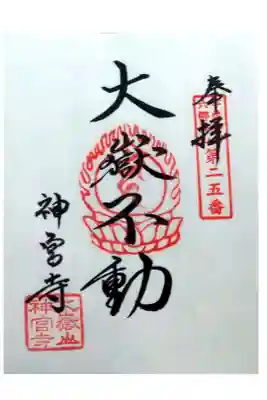 奉拝
第二五番
大嶽不動
神宮寺
大嶽山
神宮寺